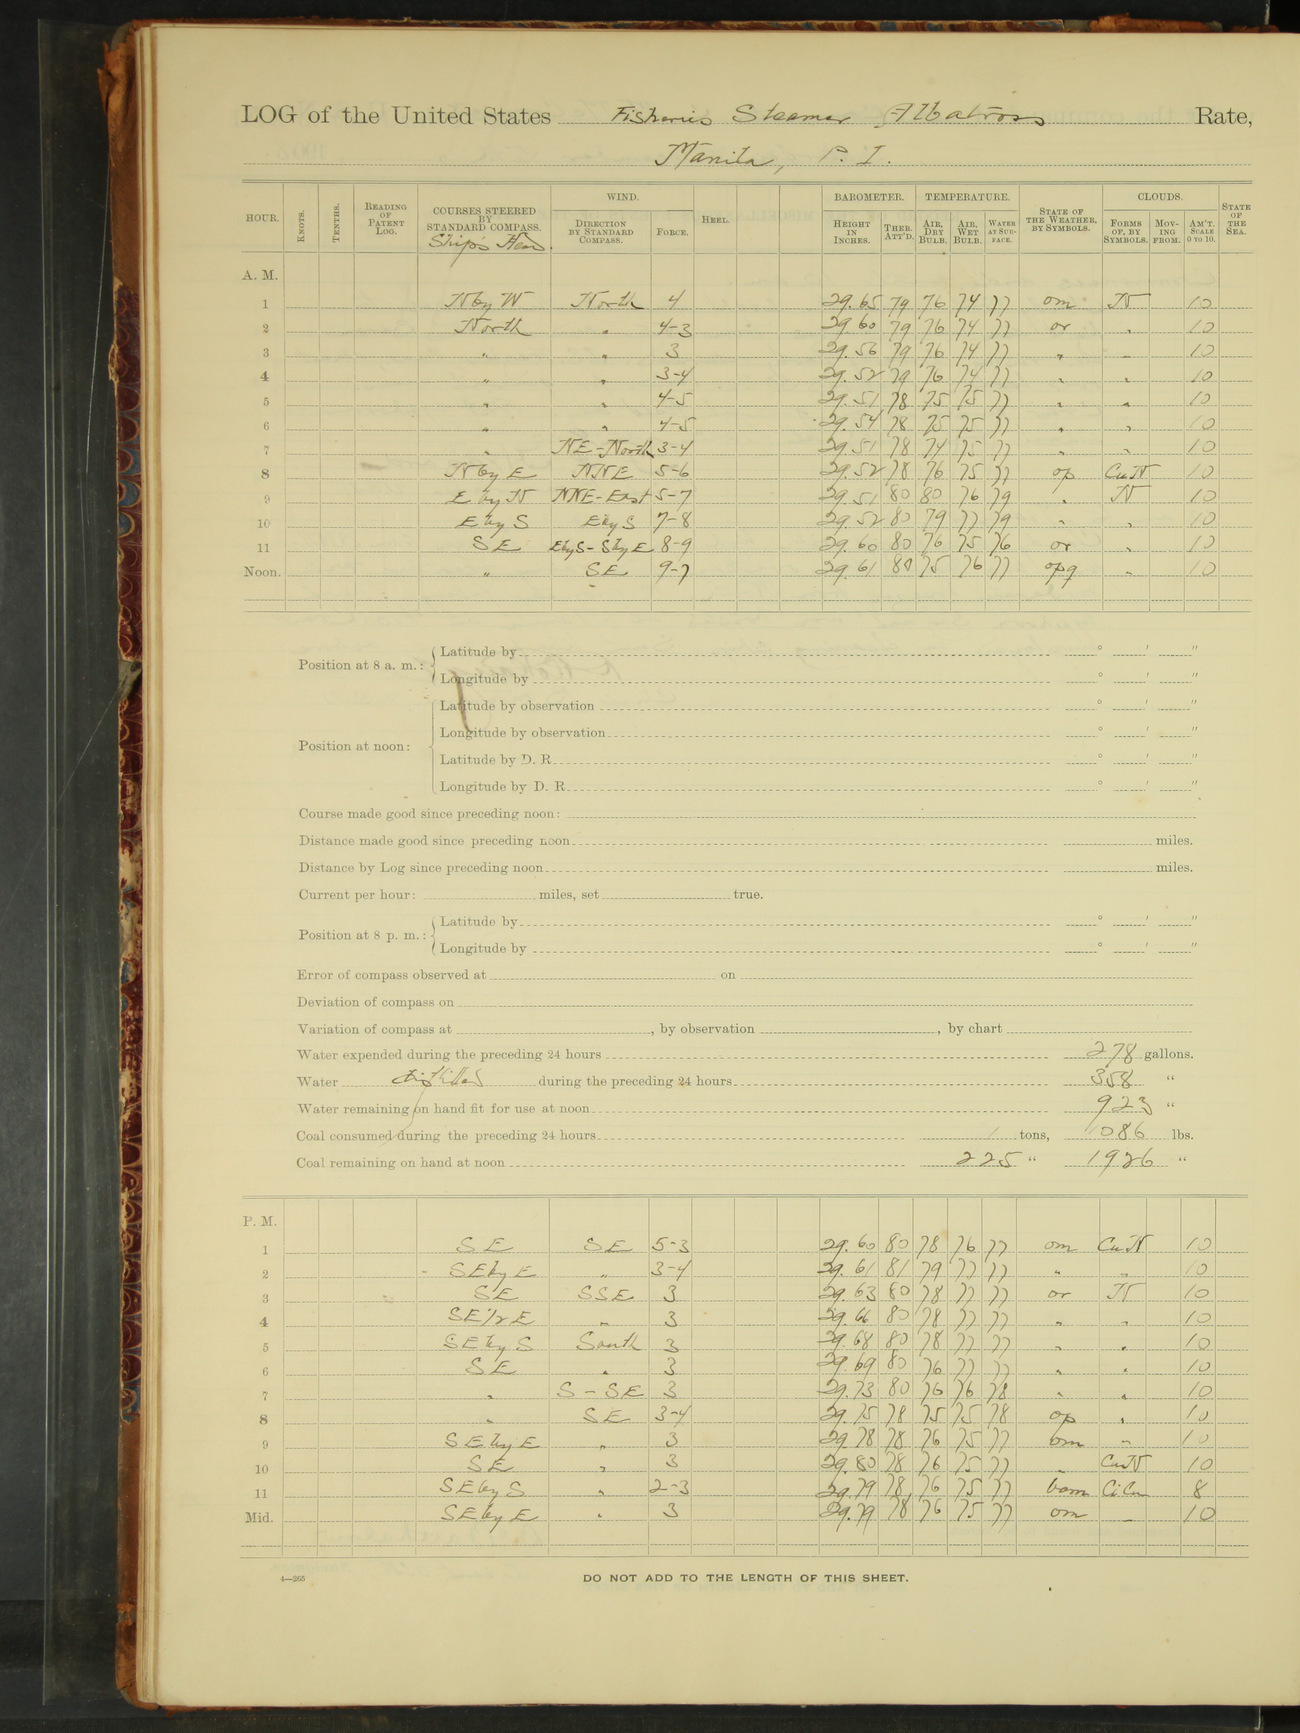 LOG of the United States Fisheries Steamer Albatross Rate,
Manila, P. I.
HOUR. KNOTS. TENTHS. READING OF PATENT LOG. COURSES STEERED BY STANDARD COMPASS. Ship's Head. WIND. DIRECTION BY STANDARD COMPASS. FORCE. HEEL. BAROMETER. HEIGHT IN INCHES. THER. ATT'D. TEMPERATURE. AIR, DRY BULB. AIR, WET BULB. WATER AT SURFACE. STATE OF THE WEATHER, BY SYMBOLS. CLOUDS. FORMS OF, BY SYMBOLS. MOVING FROM. AM'T. SCALE 0 TO 10. STATE OF THE SEA.
A. M.
1 N by W North 4 29.65 79 76 74 77 om N 10
2 North " 4-3 29.60 79 76 74 77 or " 10
3 " " 3 29.56 79 76 74 77 " " 10
4 " " 3-4 29.52 79 76 74 77 " " 10
5 " " 4-5 29.51 78 75 75 77 " " 10
6 " " 4-5 29.54 78 75 75 77 " " 10
7 " NE-North 3-4 29.51 78 74 75 77 " " 10
8 N by E NNE 5-6 29.52 78 76 75 77 op CuN 10
9 E by N NNE-East 5-7 29.51 80 80 76 79 " N 10
10 E by S E by S 7-8 29.52 80 79 77 79 " " 10
11 SE EbyS-SbyE 8-9 29.60 80 76 75 76 or " 10
Noon. " SE 9-7 29.61 80 75 76 77 opq " 10
Position at 8 a. m.: Latitude by ° ' "
Longitude by ° ' "
Position at noon: Latitude by observation ° ' "
Longitude by observation ° ' "
Latitude by D. R. ° ' "
Longitude by D. R. ° ' "
Course made good since preceding noon:
Distance made good since preceding noon miles.
Distance by Log since preceding noon miles.
Current per hour: miles, set true.
Position at 8 p. m.: Latitude by ° ' "
Longitude by ° ' "
Error of compass observed at on
Deviation of compass on
Variation of compass at , by observation , by chart
Water expended during the preceding 24 hours 278 gallons.
Water distilled during the preceding 24 hours 358 "
Water remaining on hand fit for use at noon 923 "
Coal consumed during the preceding 24 hours 1 tons, 1086 lbs.
Coal remaining on hand at noon 225 " 1926 "
P. M.
1 SE SE 5-3 29.60 80 78 76 77 om CuN 10
2 SE by E " 3-4 29.61 81 79 77 77 " " 10
3 SE SSE 3 29.63 80 78 77 77 or N 10
4 SE 1/2 E " 3 29.66 80 78 77 77 " " 10
5 SE by S South 3 29.68 80 78 77 77 " " 10
6 SE " 3 29.69 80 76 77 77 " " 10
7 " S-SE 3 29.73 80 76 76 78 " " 10
8 " SE 3-4 29.75 78 75 75 78 op " 10
9 SE by E " 3 29.78 78 76 75 77 om " 10
10 SE " 3 29.80 78 76 75 77 " CuN 10
11 SE by S " 2-3 29.79 78 76 75 77 bom CiCu 8
Mid. SE by E " 3 29.79 78 76 75 77 om — 10
4—265
DO NOT ADD TO THE LENGTH OF THIS SHEET.